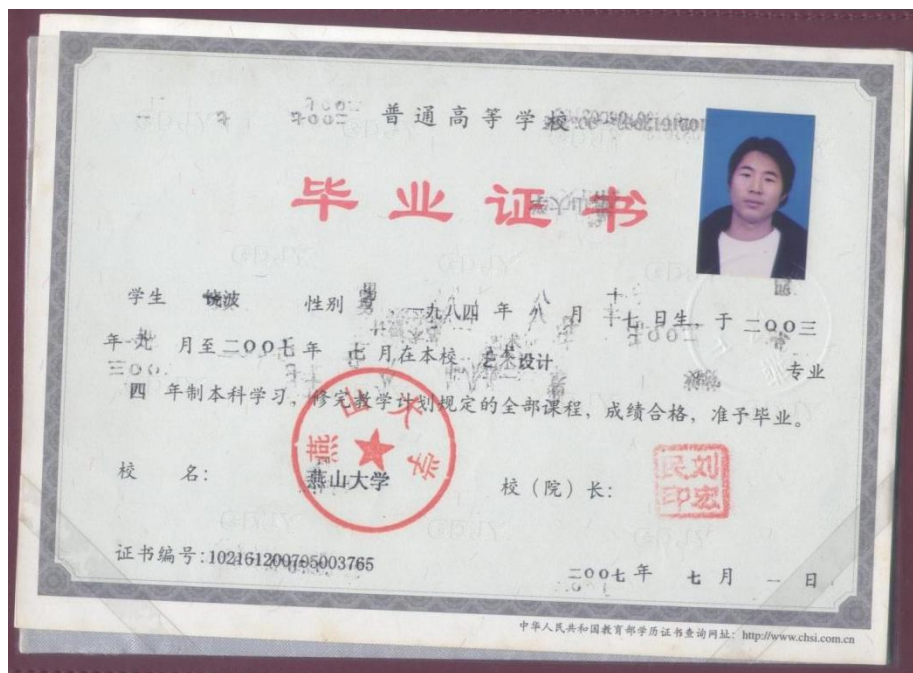 普通高等学校
毕业证书
学生 饶波 性别 男 一九八四年 八月 十七日生，于二〇〇三
年 九 月至二〇〇七年 七月在本校 艺术设计 专业
四 年制本科学习，修完教学计划规定的全部课程，成绩合格，准予毕业。
校 名：燕山大学 校（院）长：刘宏民印
燕山大学
证书编号：102161200705003765
二〇〇七年 七月 一日
中华人民共和国教育部学历证书查询网址：http://www.chsi.com.cn